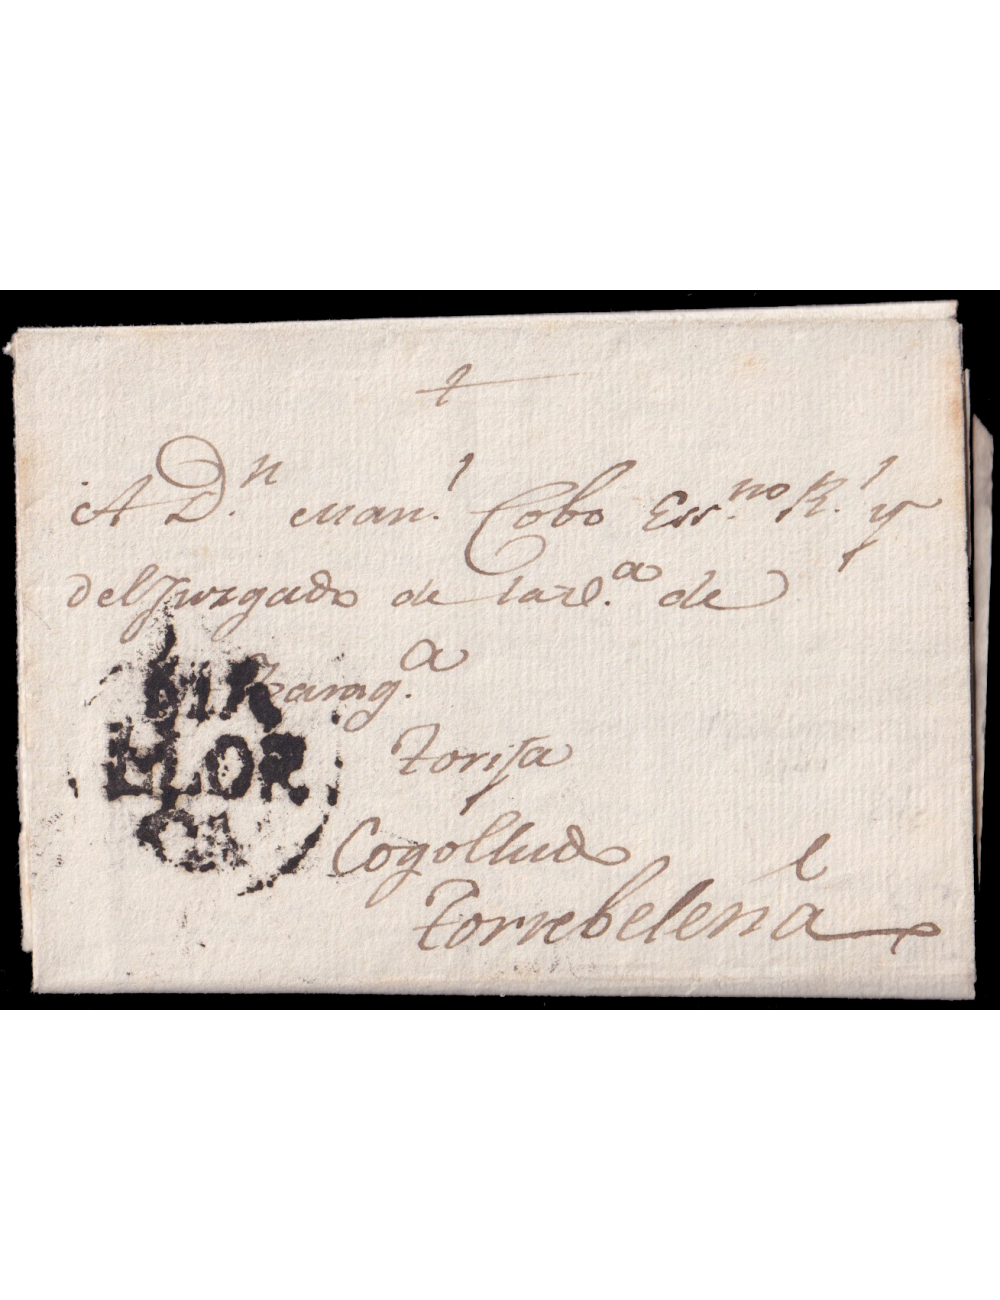 A D.n Man.l Cobo Ess.no R.l y
del Juzgado de la
de
Zarag.a
Torija
Cogolludo
Torrebeleña
MA
LLOR
CA